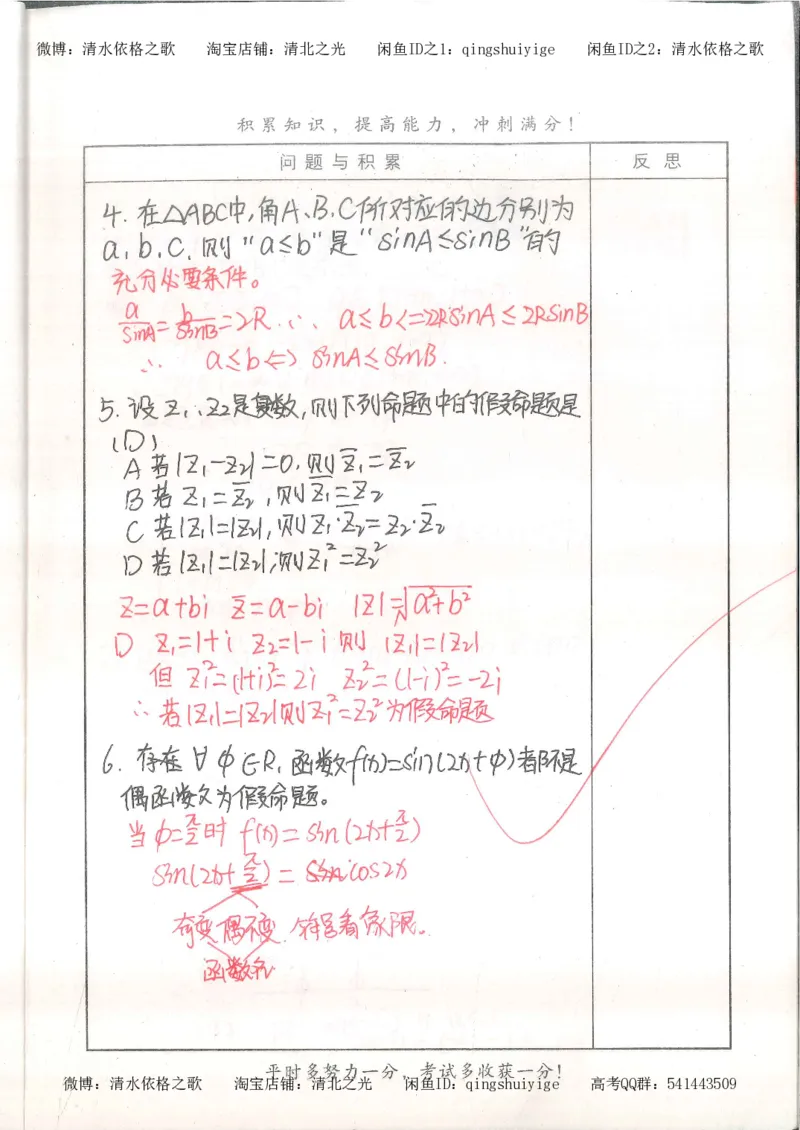 微博：清水依格之歌 淘宝店铺：清北之光 闲鱼ID之1：qingshuiyige 闲鱼ID之2：清水依格之歌
积累知识，提高能力，冲刺满分！
问题与积累 反思
4. 在△ABC中,角A、B、C所对应的边分别为
a, b, c, 则 "a≤b"是 "sinA≤sinB"的
充分必要条件。
a/sinA = b/sinB = 2R ∴ a≤b<=>2RsinA≤2RsinB
∴ a≤b<=>sinA≤sinB.
5. 设 z₁、z₂是复数,则下列命题中的假命题是
(D)
A 若|z₁-z₂|=0,则z̅₁=z̅₂
B 若 z₁=z̅₂,则z̅₁=z₂
C 若|z₁|=|z₂|,则z₁·z̅₂=z₂·z̅₂
D 若|z₁|=|z₂|,则z₁²=z₂²
z=a+bi z̅=a-bi |z|=√a²+b²
D z₁=1+i z₂=1-i 则 |z₁|=|z₂|
但 z₁²=(1+i)²=2i z₂²=(1-i)²=-2i
∴若|z₁|=|z₂|则z₁²=z₂²为假命题
6. 存在∀φ∈R,函数f(x)=sin(2x+φ)都不是
偶函数为假命题。
当φ=π/2时 f(x)=sin(2x+π/2)
sin(2x+π/2)=cos2x
奇变偶不变,符号看象限。
函数名
平时多努力一分，考试多收获一分！
微博：清水依格之歌 淘宝店铺：清北之光 闲鱼ID：qingshuiyige 高考QQ群：541443509